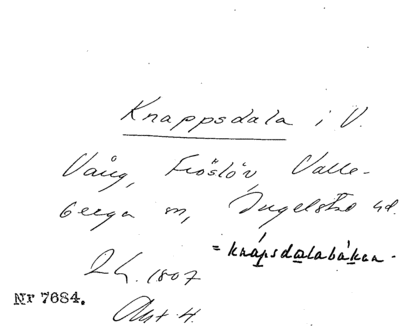 Knappsdala i V.
Vång, Fröslöv, Valle-
berga m, Ingelstad hd.
= knápsdalabákan.
Lh. 1807
Nr 7684.
Akt 4.